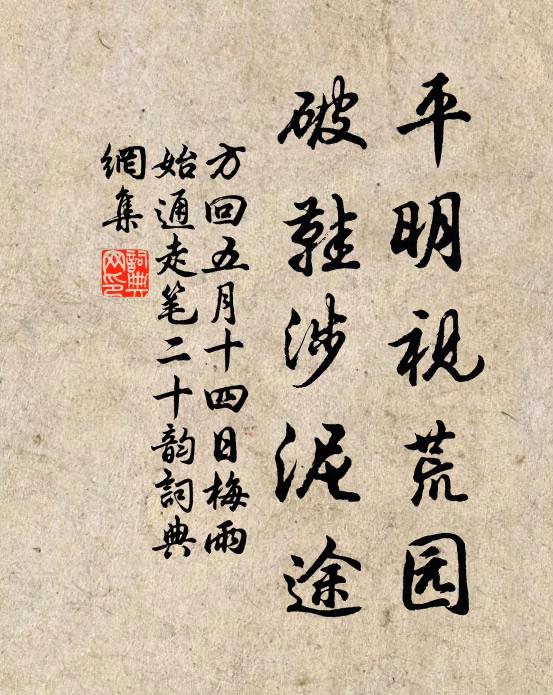 平明视荒园
破鞋涉泥途
方回五月十四日梅雨
始通走笔二十韵詞典
網集
詞典
网印